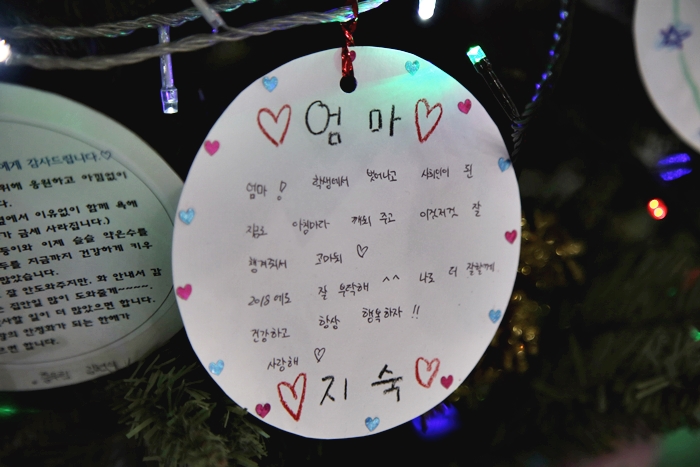 엄마
엄마! 학생에서 벗어나고 사회인이 된
지금도 아침마다 깨워 주고 이것저것 잘
챙겨줘서 고마워 ♡
2018에도 잘 부탁해 ^^ 나도 더 잘할게
건강하고 항상 행복하자!!
사랑해 ♡
지숙
에게 감사드립니다.♡
위해 응원하고 아낌없이
에서 이유없이 함께 욕해
가 금세 사라집니다.)
동이와 이제 슬슬 약은수를
두를 지금까지 건강하게 키우
많았습니다.
잘 안도와주지만, 와 안내서 감
집안일 많이 도와줄게~~~~.
사할 일이 더 많았으면 합니다.
의 안정화가 되는 한해가
으면 합니다.